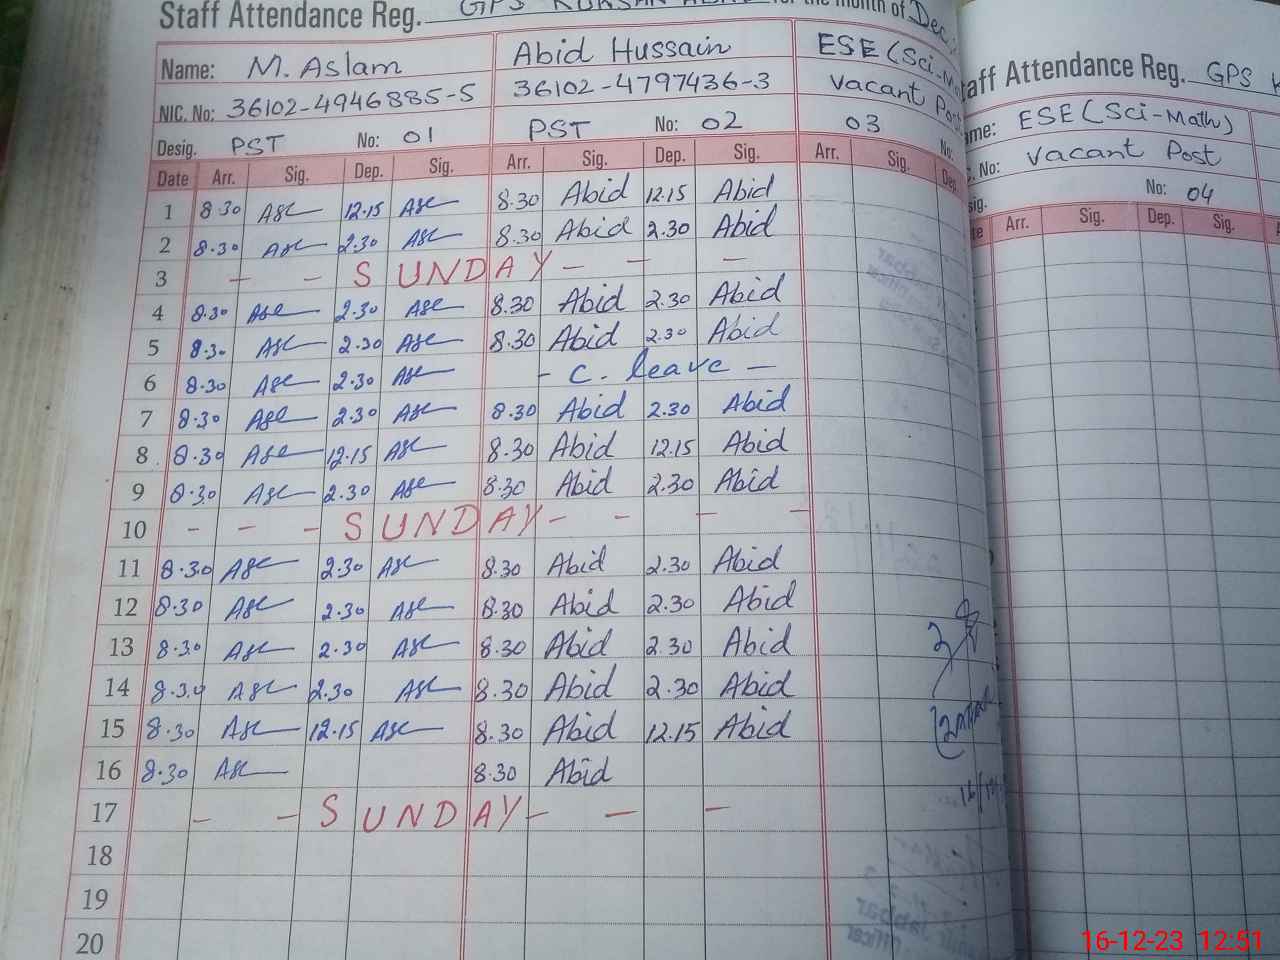 Staff Attendance Reg. GPS for the month of Dec,
Name: M. Aslam Abid Hussain ESE (Sci-
NIC. No: 36102-4946885-5 36102-4797436-3 Vacant Post
Desig. PST No: 01 PST No: 02 03 No:
Date Arr. Sig. Dep. Sig. Arr. Sig. Dep. Sig. Arr. Sig. Dep.
1 8.30 Asl 12.15 Asl 8.30 Abid 12.15 Abid
2 8.30 Asl 2.30 Asl 8.30 Abid 2.30 Abid
3 - - SUNDAY - - -
4 8.30 Asl 2.30 Asl 8.30 Abid 2.30 Abid
5 8.30 Asl 2.30 Asl 8.30 Abid 2.30 Abid
6 8.30 Asl 2.30 Asl - C. leave -
7 8.30 Asl 2.30 Asl 8.30 Abid 2.30 Abid
8 8.30 Asl 12.15 Asl 8.30 Abid 12.15 Abid
9 8.30 Asl 2.30 Asl 8.30 Abid 2.30 Abid
10 - - - SUNDAY - - - -
11 8.30 Asl 2.30 Asl 8.30 Abid 2.30 Abid
12 8.30 Asl 2.30 Asl 8.30 Abid 2.30 Abid
13 8.30 Asl 2.30 Asl 8.30 Abid 2.30 Abid
14 8.30 Asl 2.30 Asl 8.30 Abid 2.30 Abid
15 8.30 Asl 12.15 Asl 8.30 Abid 12.15 Abid
16 8.30 Asl 8.30 Abid
17 - - SUNDAY - - -
18
19
20
aff Attendance Reg. GPS
me: ESE (Sci-Math)
No: Vacant Post
sig. No: 04
te Arr. Sig. Dep. Sig.
16-12-23 12:51